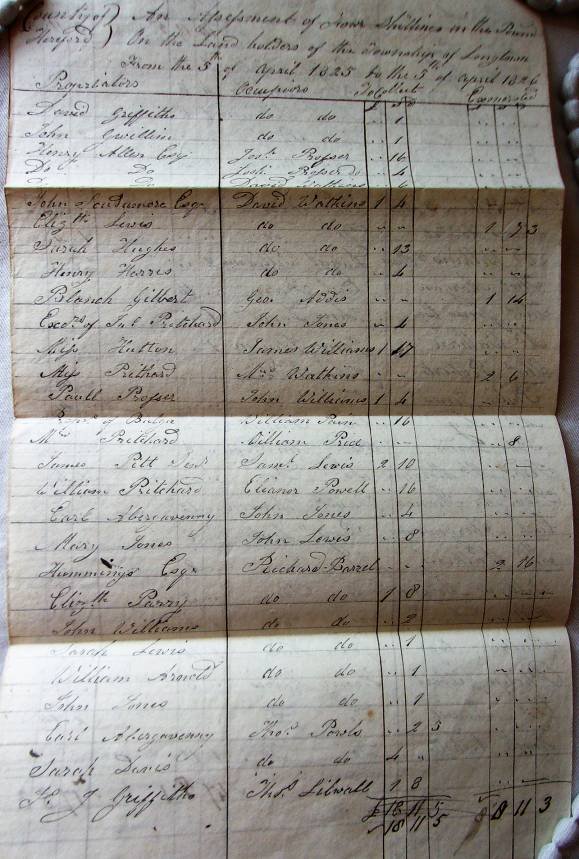 County of } An Assessment of Four Shillings in the Pound
Hereford } On the Land holders of the Township of Longtown
From the 5th of April 1825 to the 5th of April 1826
Propriators Occupiers To Collect Exonerated
David Griffiths do do 1
John Gwillim do do 1
Henry Allen Esq Josh Prosser 16
Do Do Josh Prosser do 4
David Watkins
John Scudamore Esqr David Watkins 1 4
Elizth Lewis do do 1 7 3
Sarah Hughes do do 13
Henry Harris do do 4
Blanch Gilbert Geo Addis 1 14
Excrs of Jnl Pritchard John Jones 4
Miss Hutton James Williams 1 17
Miss Prithard Mrs Watkins 2 6
Paull Prosser John Williams 1 4
William Pain 16
Mrs Pritchard William Prid 8
James Pitt Senr Saml Lewis 2 10
William Pritchard Eleanor Powell 16
Earl Abergavenny John Jones 4
Mary Jones John Lewis 8
Hummings Esqr Richard Barrel 2 16
Elizth Parry do do 1 8
John Williams do do 2
Sarah Lewis do do 1
William Arnold do do 1
John Jones do do 1
Earl Abergavenny Thos Powls 2 5
Sarah Davis do do 4
J Griffiths Thos Lilwall 1 8
£ 18 11 5 £ 8 11 3
18 11 5